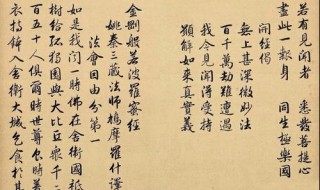 若有見聞者 悉發菩提心
盡此一報身 同生極樂國
開經偈
無上甚深微妙法
百千萬劫難遭遇
我今見聞得受持
願解如來真實義
金剛般若波羅蜜經
姚秦三藏法師鳩摩羅什譯
法會因由分第一
如是我聞一時佛在舍衛國祇
樹給孤獨園與大比丘衆千二
百五十人俱爾時世尊食時著
衣持鉢入舍衛大城乞食於其